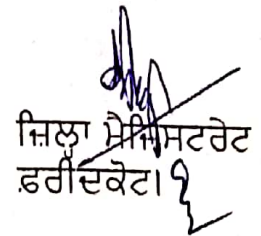 ਜ਼ਿਲ੍ਹਾ ਮੈਜਿਸਟਰੇਟ
ਫ਼ਰੀਦਕੋਟ।